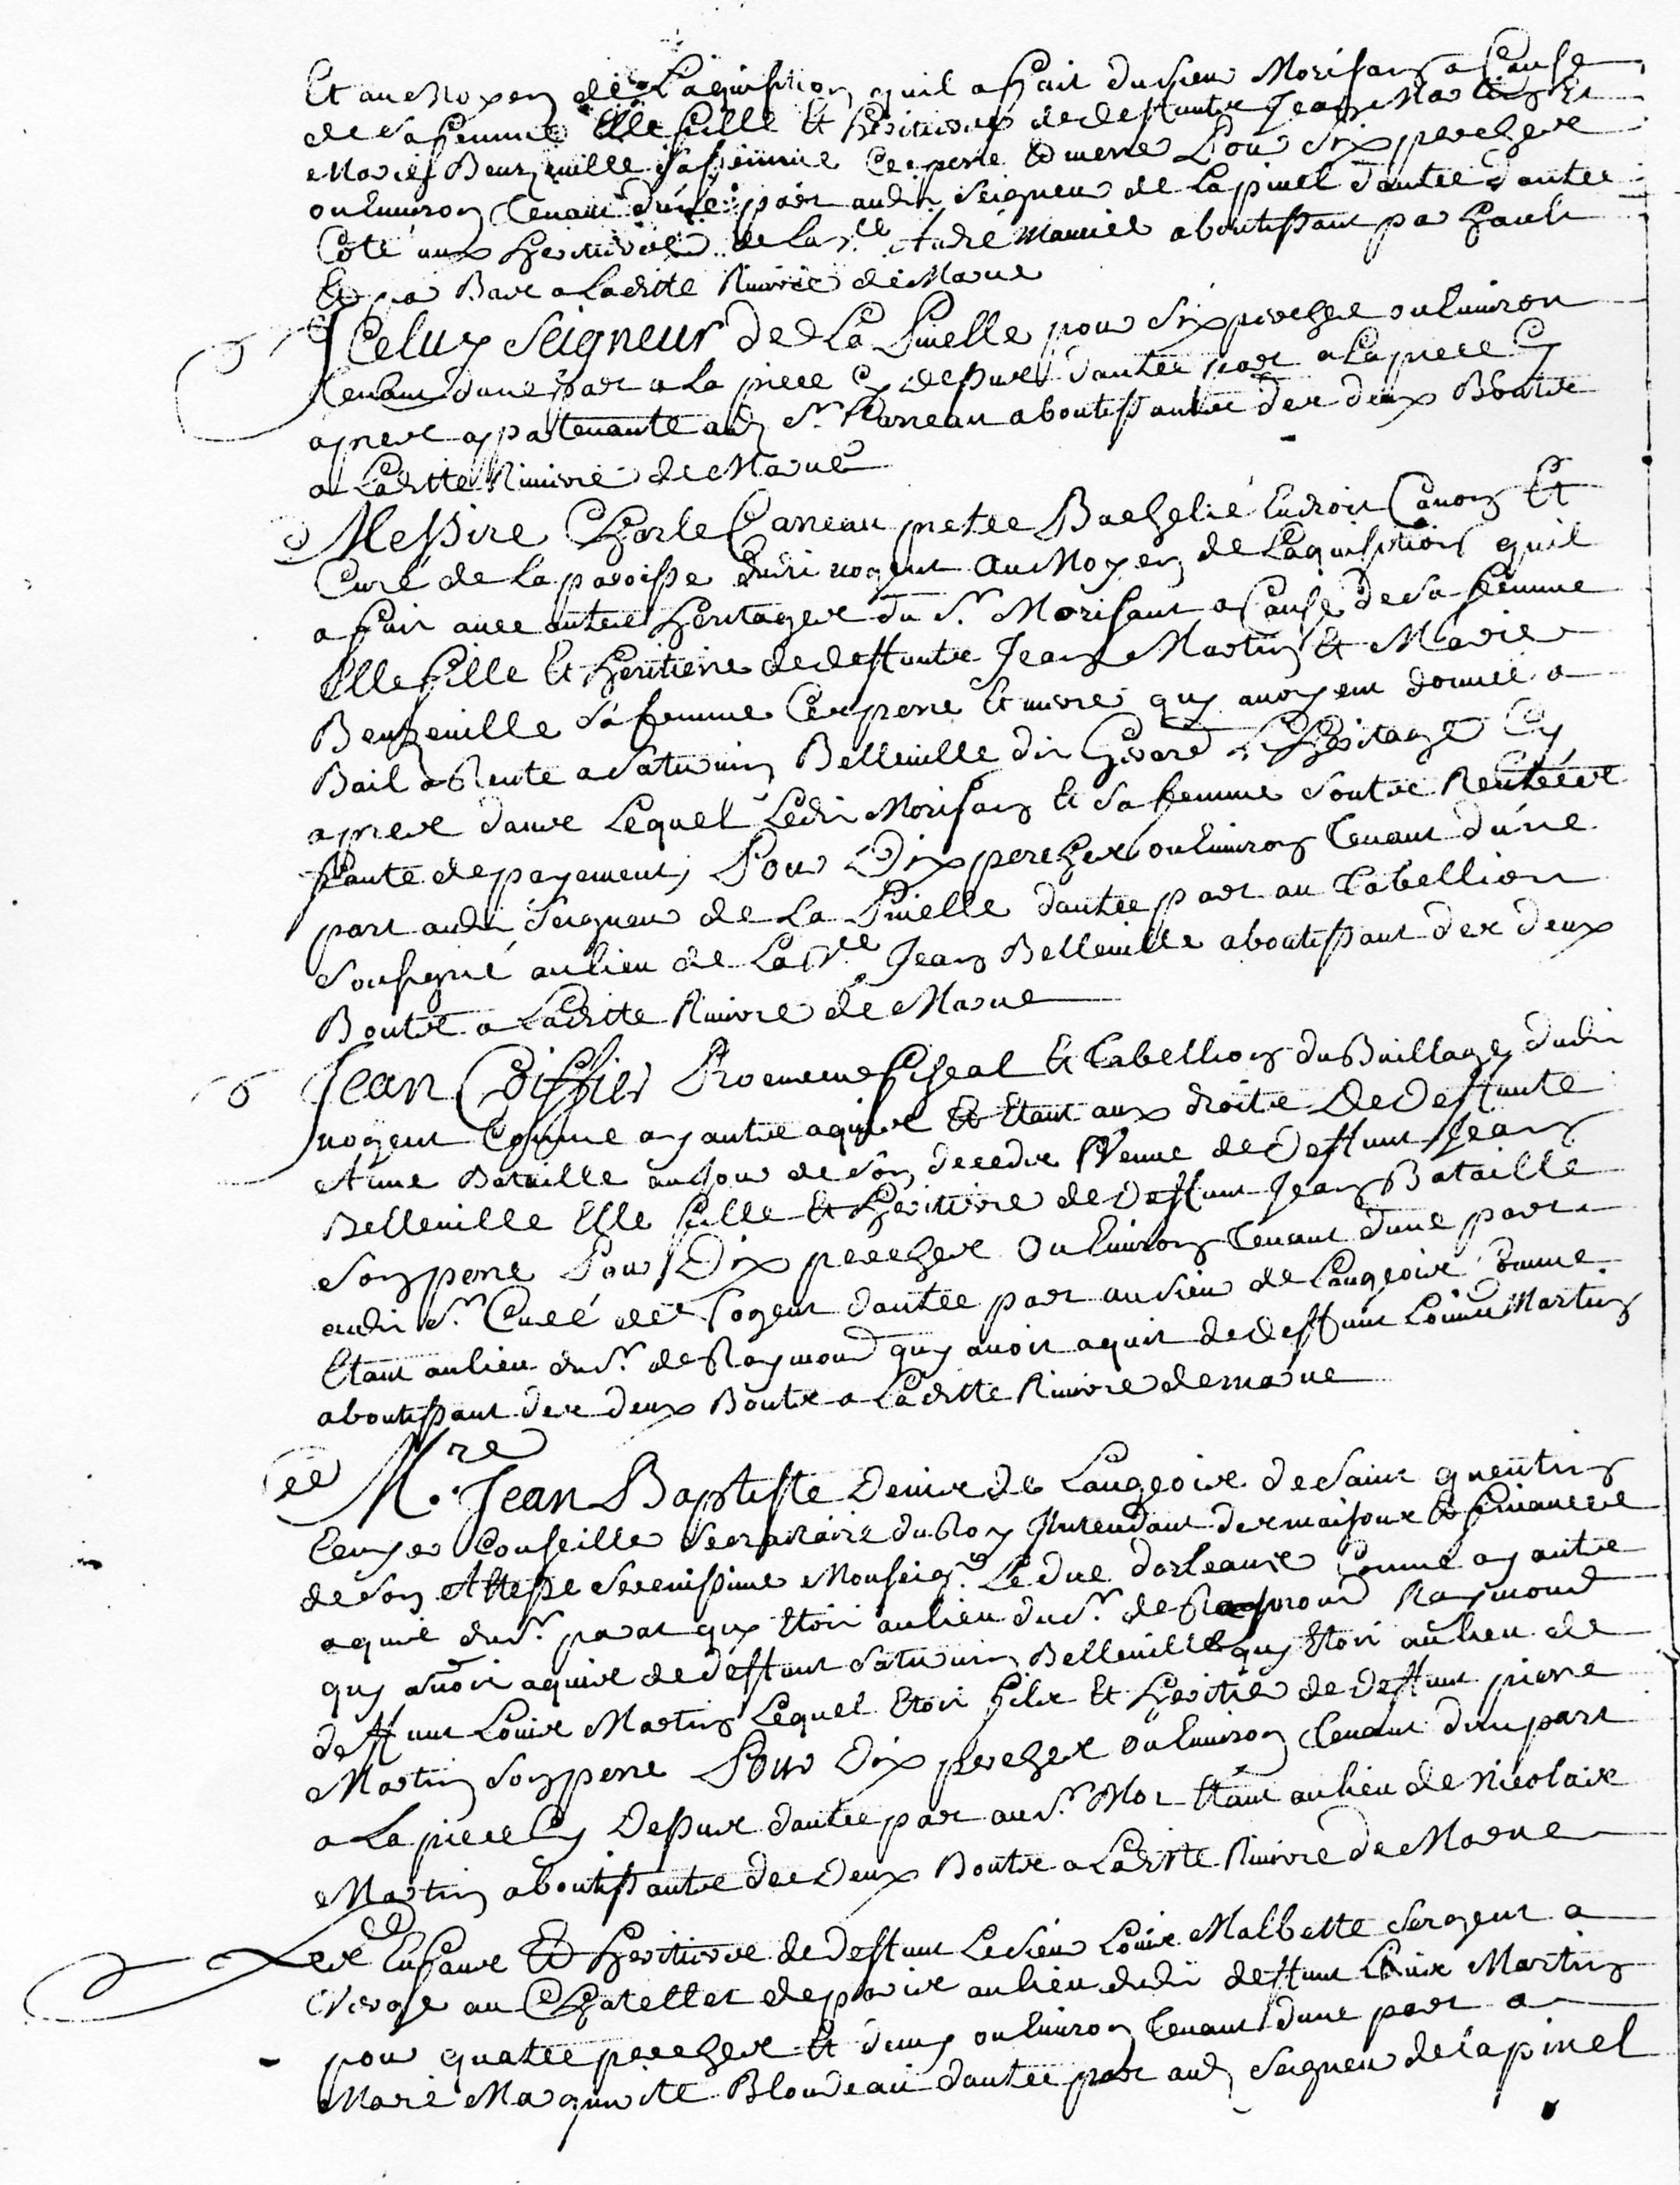 Et au moyen de Laquisition quil a fait du sieur Morisan a Cause
de sa femme Elle fille Et heritiere de deffuntz Jean Martin Et
Marie Beuzeuille sa femme Ces pere Et mere Pour Six perches
ou Enuiron tenant dune part audit Seigneur de Lapinel dautre dautre
Coté aux heritiers de La Ve André aboutissant par hault
Et par Bas a Ladite Riuiere de Marne
Iceluy Seigneur de La Pinelle pour Six perches ou Enuiron
tenant dune part a La piece Cy dessus dautre part a La piece Cy
apres apartenante aud Sr Carreau aboutissante des deux Bouts
a Ladite Riuiere de Marne
Messire Charle Carreau pretre Bachelié En droit Canon Et
Curé de La paroisse dudit nogent au Moyen de Laquisition quil
a fait auec autres heritages du Sr Morisant a Cause de sa femme
Elle fille Et heritiere de deffunts Jean Martin Et Marie
Beuzeuille sa femme Ces pere Et mere quy auoyent donné a
Bail a Rente a Saturnin Belleuille dit L heritage Cy
apres dans Lequel Ledit Morisan Et sa femme sonts Rentrés
faute de payement, Pour Dix perches ou Enuiron tenant dune
part audit Seigneur de La Pinelle dautre part au Tabellion
Sousigné au lieu de La Ve Jean Belleuille aboutissant des deux
Bouts a Ladite Riuiere de Marne
Jean Coiffier Procureur fiscal Et Tabellion du Baillage dudit
nogent Comme ayants aquis Et Etant aux droits De Deffunte
Anne Bataille au Jour de son decedz Veuue de Deffunt Jean
Belleuille Elle fille Et heritiere de Deffunt Jean Bataille
Son pere Pour Dix perches ou Enuiron tenant dune part
audit Sr Curé de Nogent dautre part au Sieur de Laugeois
Etant au lieu du Sr de Raymond quy auoit aquit de deffunt Louis Martin
aboutissant des deux Bouts a Ladite Riuiere de marne
Mre Jean Baptiste Denis de Laugeois de Saint quentin
Ecuyer Conseiller Secretaire du Roy Intendant des maisons Et finances
de Son Altesse Serenissime Monseigr Le duc dorleans Comme ayants
aquis du Sr parat quy Etoit au lieu du Sr de Raymond
quy auoit aquis de deffunt Saturnin Belleuille quy Etoit au lieu de
deffunt Louis Martin Lequel Etoit fils Et heritier de Deffunt pierre
Martin Son pere Pour Dix perches ou Enuiron tenant dun part
a La piece Cy Dessus dautre part au Sr Mor Etant au lieu de Nicolais
Martin aboutissants des Deux Bouts a Ladite Riuiere de Marne
Les Enfans Et heritiers de deffunt Le sieur Louis Malbette Sergent a
Verge au Chatellet de paris au lieu dudit deffunt Louis Martin
pour quatre perches Et demy ou Enuiron tenant dune part a
Marie Marguerite Blondeau dautre part aud Seigneur de Lapinel